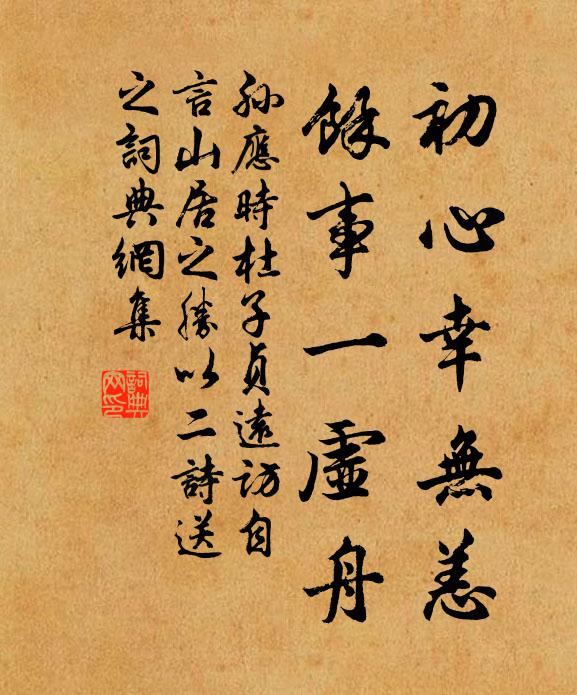 初心幸無恙
餘事一虛舟
孫應時杜子貞遠訪自
言山居之勝以二詩送
之詞典網集
詞典
网印